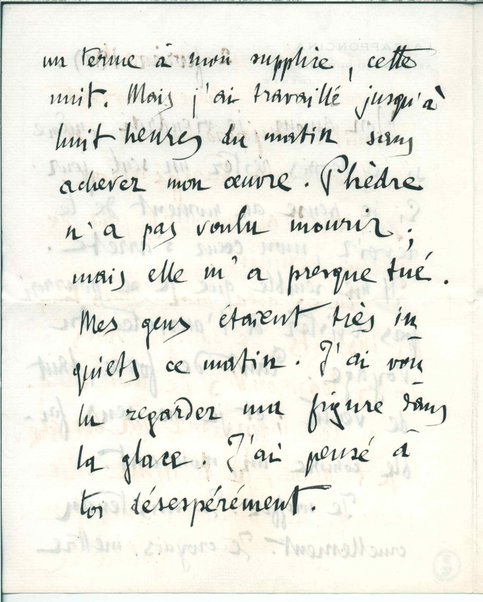 un terme à mon supplice, cette
nuit. Mais j'ai travaillé jusqu'à
huit heures du matin sans
achever mon œuvre. Phèdre
n'a pas voulu mourir ;
mais elle m'a presque tué.
Mes gens étaient très in
quiets ce matin. J'ai vou
lu regarder ma figure dans
la glace. J'ai pensé à
toi désespérément.